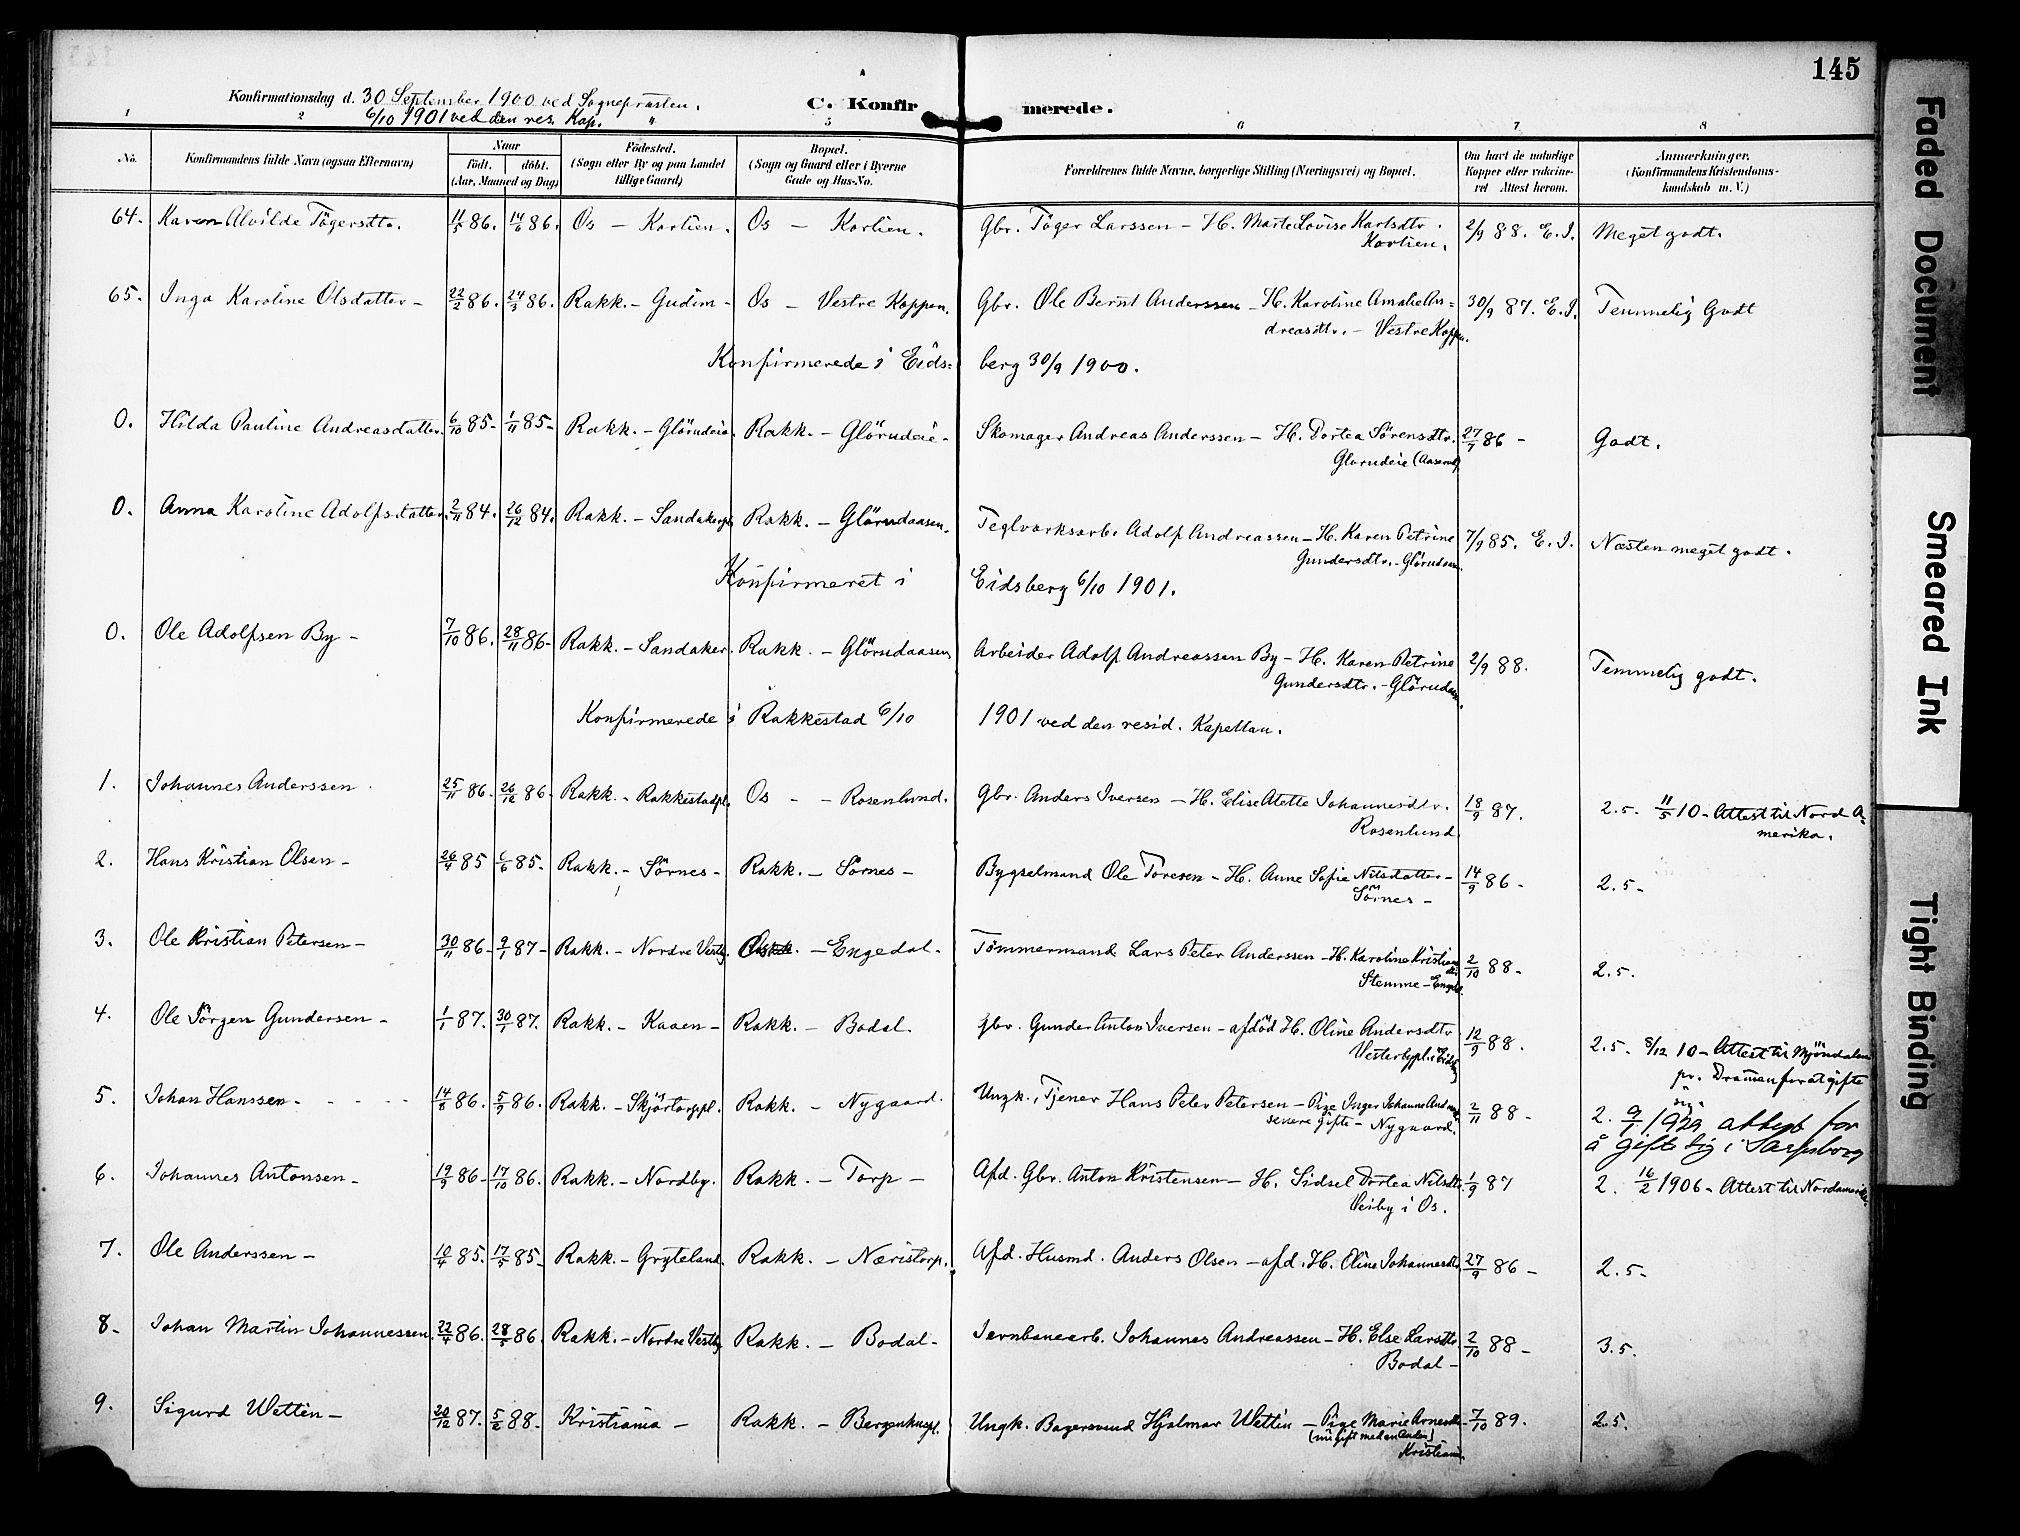 145
Konfirmationsdag d. 30 September 1900 ved Sognepræsten.
6/10 1901 ved den res. Kap.
C. Konfirmerede.
1 2 " 5 6 7 8
No. Konfirmandens fulde Navn (ogsaa Efternavn) Naar født. døbt. (Aar, Maaned og Dag) Fødested. (Sogn eller By og paa Landet tillige Gaard) Bopæl. (Sogn og Gaard eller i Byerne Gade og Hus-No. Forældrenes fulde Navne, borgerlige Stilling (Næringsvei) og Bopæl. Om havt de naturlige Kopper eller vaccineret Attest herom. Anmærkninger. (Konfirmandens Kristendomskundskab m. V.)
64. Karen Alvilde Tøgersdtr. 11/5 86. 14/6 86. Os – Korlien. Os – Korlien. Gbr. Tøger Larssen – H. Marte Lovise Karlsdtr. 2/9 88. E. J. Meget godt.
Korlien.
65. Inga Karoline Olsdatter – 22/2 86. 24/3 86. Rakk. – Gudim – Os – Vestre Koppen. Gbr. Ole Bernt Anderssen – H. Karoline Amalie An= 30/9 87. E. J. Temmelig Godt
dreasdtr. – Vestre Koppen.
Konfirmerede i Eids= berg 30/9 1900.
0. Hilda Pauline Andreasdatter. 6/10 85 – 1/11 85 – Rakk. – Glørudeie. Rakk. – Glørudeie – Skomager Andreas Anderssen – H. Dortea Sørensdtr. 27/9 86 – Godt.
Glørudeie
0. Anna Karoline Adolfsdatter. 2/11 84. 26/12 84. Rakk. – Sandakerpl. Rakk. – Glørudaasen. Teglværksarb. Adolf Andreassen – H. Karen Petrine 7/9 85. E. J. Næsten meget godt.
Gundersdtr. – Glørudaas.
Konfirmeret i Eidsberg 6/10 1901.
0. Ole Adolfsen By – 7/10 86. 28/11 86 – Rakk. – Sandaker. Rakk. – Glørudaasen Arbeider Adolf Andreassen By – H. Karen Petrine 2/9 88. Temmelig godt.
Gundersdtr. – Glørudaas.
Konfirmerede i Rakkestad 6/10 1901 ved den resid. Kapellan.
1. Johannes Anderssen. 25/11 86. 26/12 86. Rakk. – Rakkestadpl. Os – – Rosenlund. Gbr. Anders Iversen – H. Elise Atette Johannesdtr. 18/9 87. 2.5. 11/5 10 – Attest til Nord A=
Rosenlund merika.
2. Hans Kristian Olsen – 26/4 85 6/6 85. Rakk. – Sörnes – Rakk. – Sörnes – Bygselmand Ole Toresen – H. Anne Sofie Nilsdatter – 14/9 86 – 2.5 –
Sörnes –
3. Ole Kristian Petersen – 30/11 86 – 9/1 87 – Rakk. – Nordre Vestby. – Engedal. Tømmermand Lars Peter Anderssen – H. Karoline Kristians 2/10 88 – 2.5.
dtr. Stemme – Engdl.
4. Ole Jörgen Gundersen – 1/1 87. 30/1 87. Rakk. – Kaaen – Rakk. – Bodal. gbr. Gunder Anton Iversen – afdöd H. Oline Andersdtr 12/9 88. 2.5. 8/12 10 – Attest til Mjöndalen
pr. Dramen for at gifte
sig.
5. Johan Hanssen. - - - - 14/8 86. 5/9 86. Rakk. – Skjörtorppl. Rakk. – Nygaard. Ungk., Tjener Hans Peter Petersen – Pige Inger Johanne 2/11 88 – 2. 9/1 1929 attest for
senere gifte – Nygaard. å gifte sig i Sarpsborg
6. Johannes Antonsen – 19/9 86 – 17/10 86. Rakk. – Nordby. Rakk. – Torp – Afd. Gbr. Anton Kristensen – H. Sidsel Dortea Nilsdtr. 1/9 87 2. 16/2 1906 – Attest til Nordamerika.
Veiby i Os.
7. Ole Anderssen – 10/4 85. 17/5 85 – Rakk. – Gryteland. Rakk. – Næristorp. Afd. Husmd. Anders Olsen – afd. H. Oline Johannesdtr. 27/9 86 – 2.5 –
8 – Johan Martin Johannessen. 22/4 86. 28/5 86. Rakk. – Nordre Vestby Rakk. – Bodal – Jernbanearb. Johannes Andreassen – H. Else Larsdtr. 2/10 88 – 3.5.
Bodal –
9. Sigurd Wettin – 20/12 87. 5/2 88 – Kristiania – Rakk. – Bergenhuspl. Ungk. Bagersvend Hjalmar Wettin – Pige Marie Arnesdtr. 7/10 89. 2.5.
(nu gift med en anden)
Kristiania.
Faded Document
Smeared Ink
Tight Binding